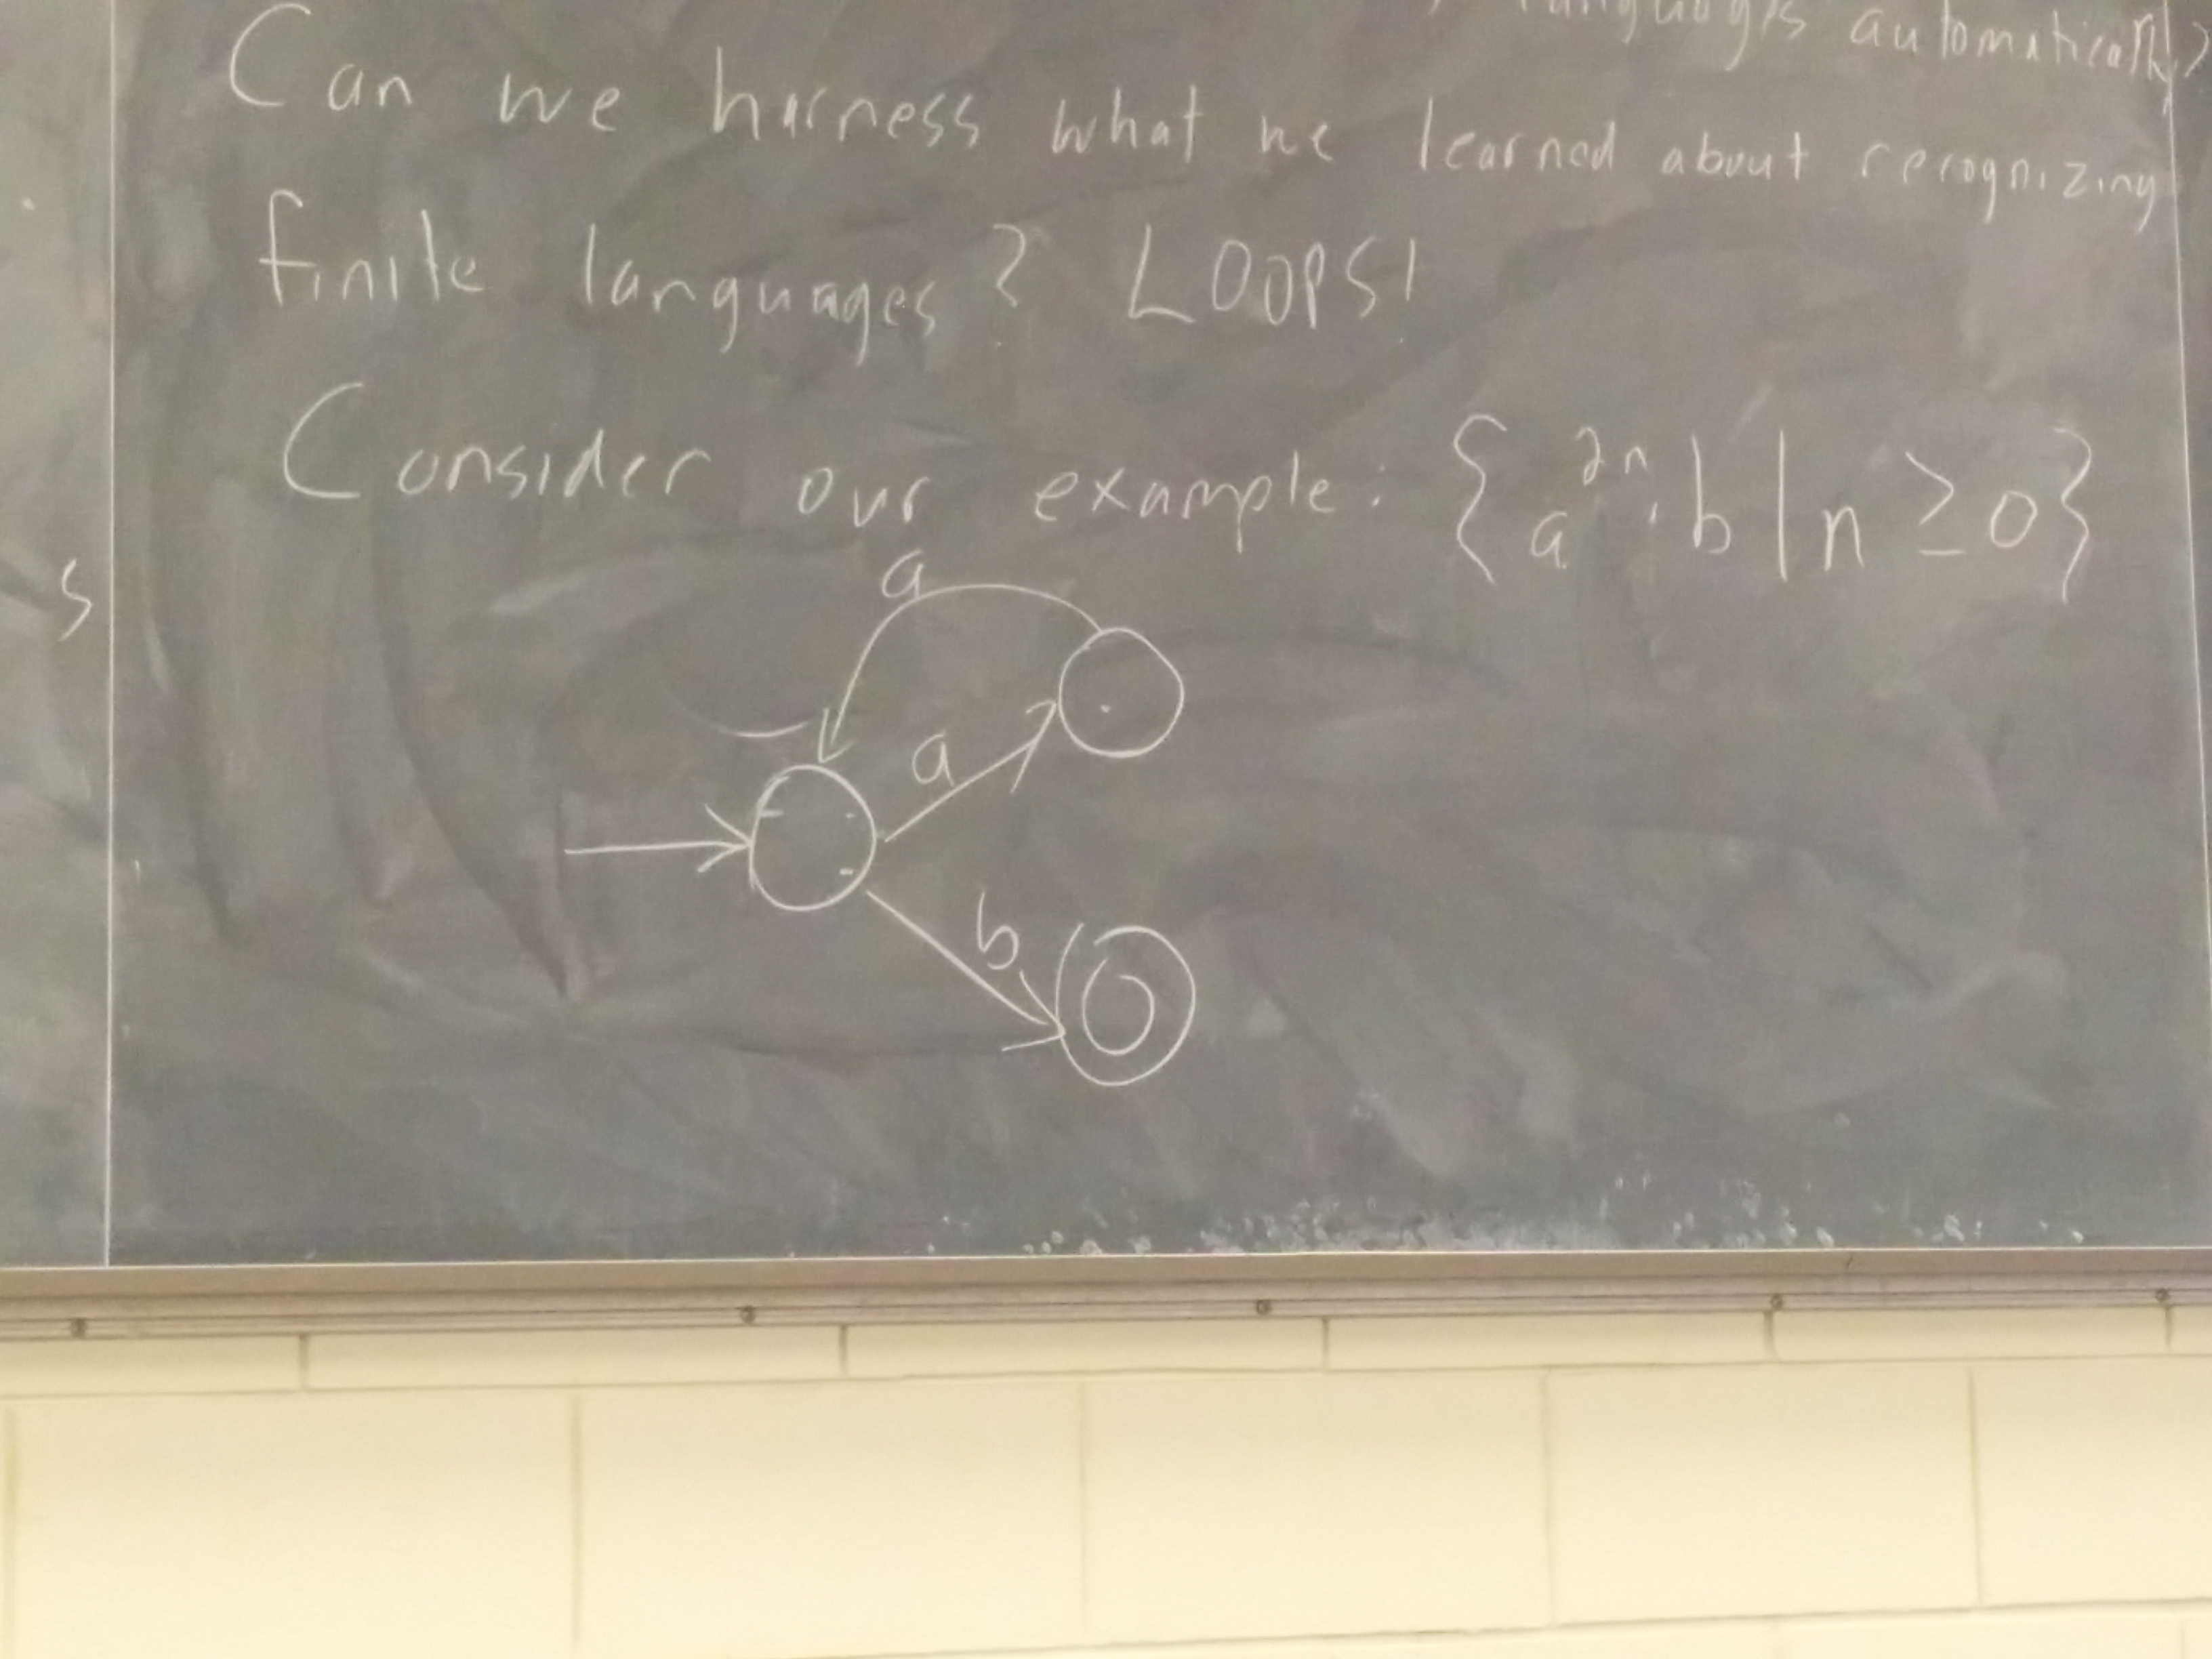 languages automatically?
Can we harness what we learned about recognizing
finite languages? LOOPS!
Consider our example: {a²ⁿ·b | n ≥ 0}
s
a
a
b